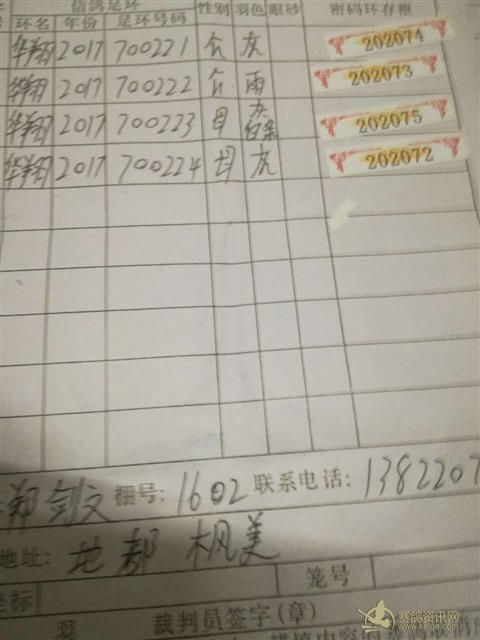 信鸽足环
环名 年份 足环号码 性别 羽色 眼砂 密码环存根
华翔 2017 700221 公 灰 202074
华翔 2017 700222 公 雨 202073
华翔 2017 700223 母 灰白条 202075
华翔 2017 700224 母 灰 202072
郑剑文 棚号: 1602 联系电话: 1382207
地址: 地都 枫美
笼号
坐标
裁判员签字(章)
赛鸽资讯网
www.saige.com